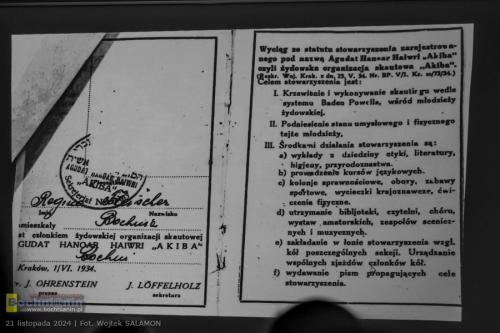 ODZNAKA "AKIBA"
Regina Fischler
Imię Nazwisko
amieszkały Bochnia
st członkiem żydowskiej organizacji skautowej
GUDAT HANOAR HAIWRI „AKIBA"
Bochni
Kraków, 1/VI. 1934.
J. OHRENSTEIN J. LÖFFELHOLZ
prezes sekretarz
Wyciąg ze statutu stowarzyszenia zarejestrowa-
nego pod nazwą Agudat Hanoar Haiwri „Akiba"
czyli żydowska organizacja skautowa „Akiba".
Celem stowarzyszenia jest:
I. Krzewienie i wykonywanie skautingu wedle
systemu Baden Powella, wśród młodzieży
żydowskiej.
II. Podniesienie stanu umysłowego i fizycznego
tejże młodzieży,
III. Środkami działania stowarzyszenia są:
a) wykłady z dziedziny etyki, literatury,
higjeny, przyrodoznastwa.
b) prowadzenie kursów językowych.
c) kolonje sprawnościowe, obozy, zabawy
sportowe, wycieczki krajoznawcze, ćwi-
czenia fizyczne.
d) utrzymanie bibljoteki, czytelni, chóru,
wystaw amatorskich, zespołów scenicz-
nych i muzycznych.
e) zakładanie w łonie stowarzyszenia wzgl.
kół poszczególnych sekcji. Urządzanie
wspólnych zjazdów członków kół.
f) wydawanie pism propagujących cele
stowarzyszenia.
Bochnianin
bochnianin.pl
21 listopada 2024 | Fot. Wojtek SALAMON